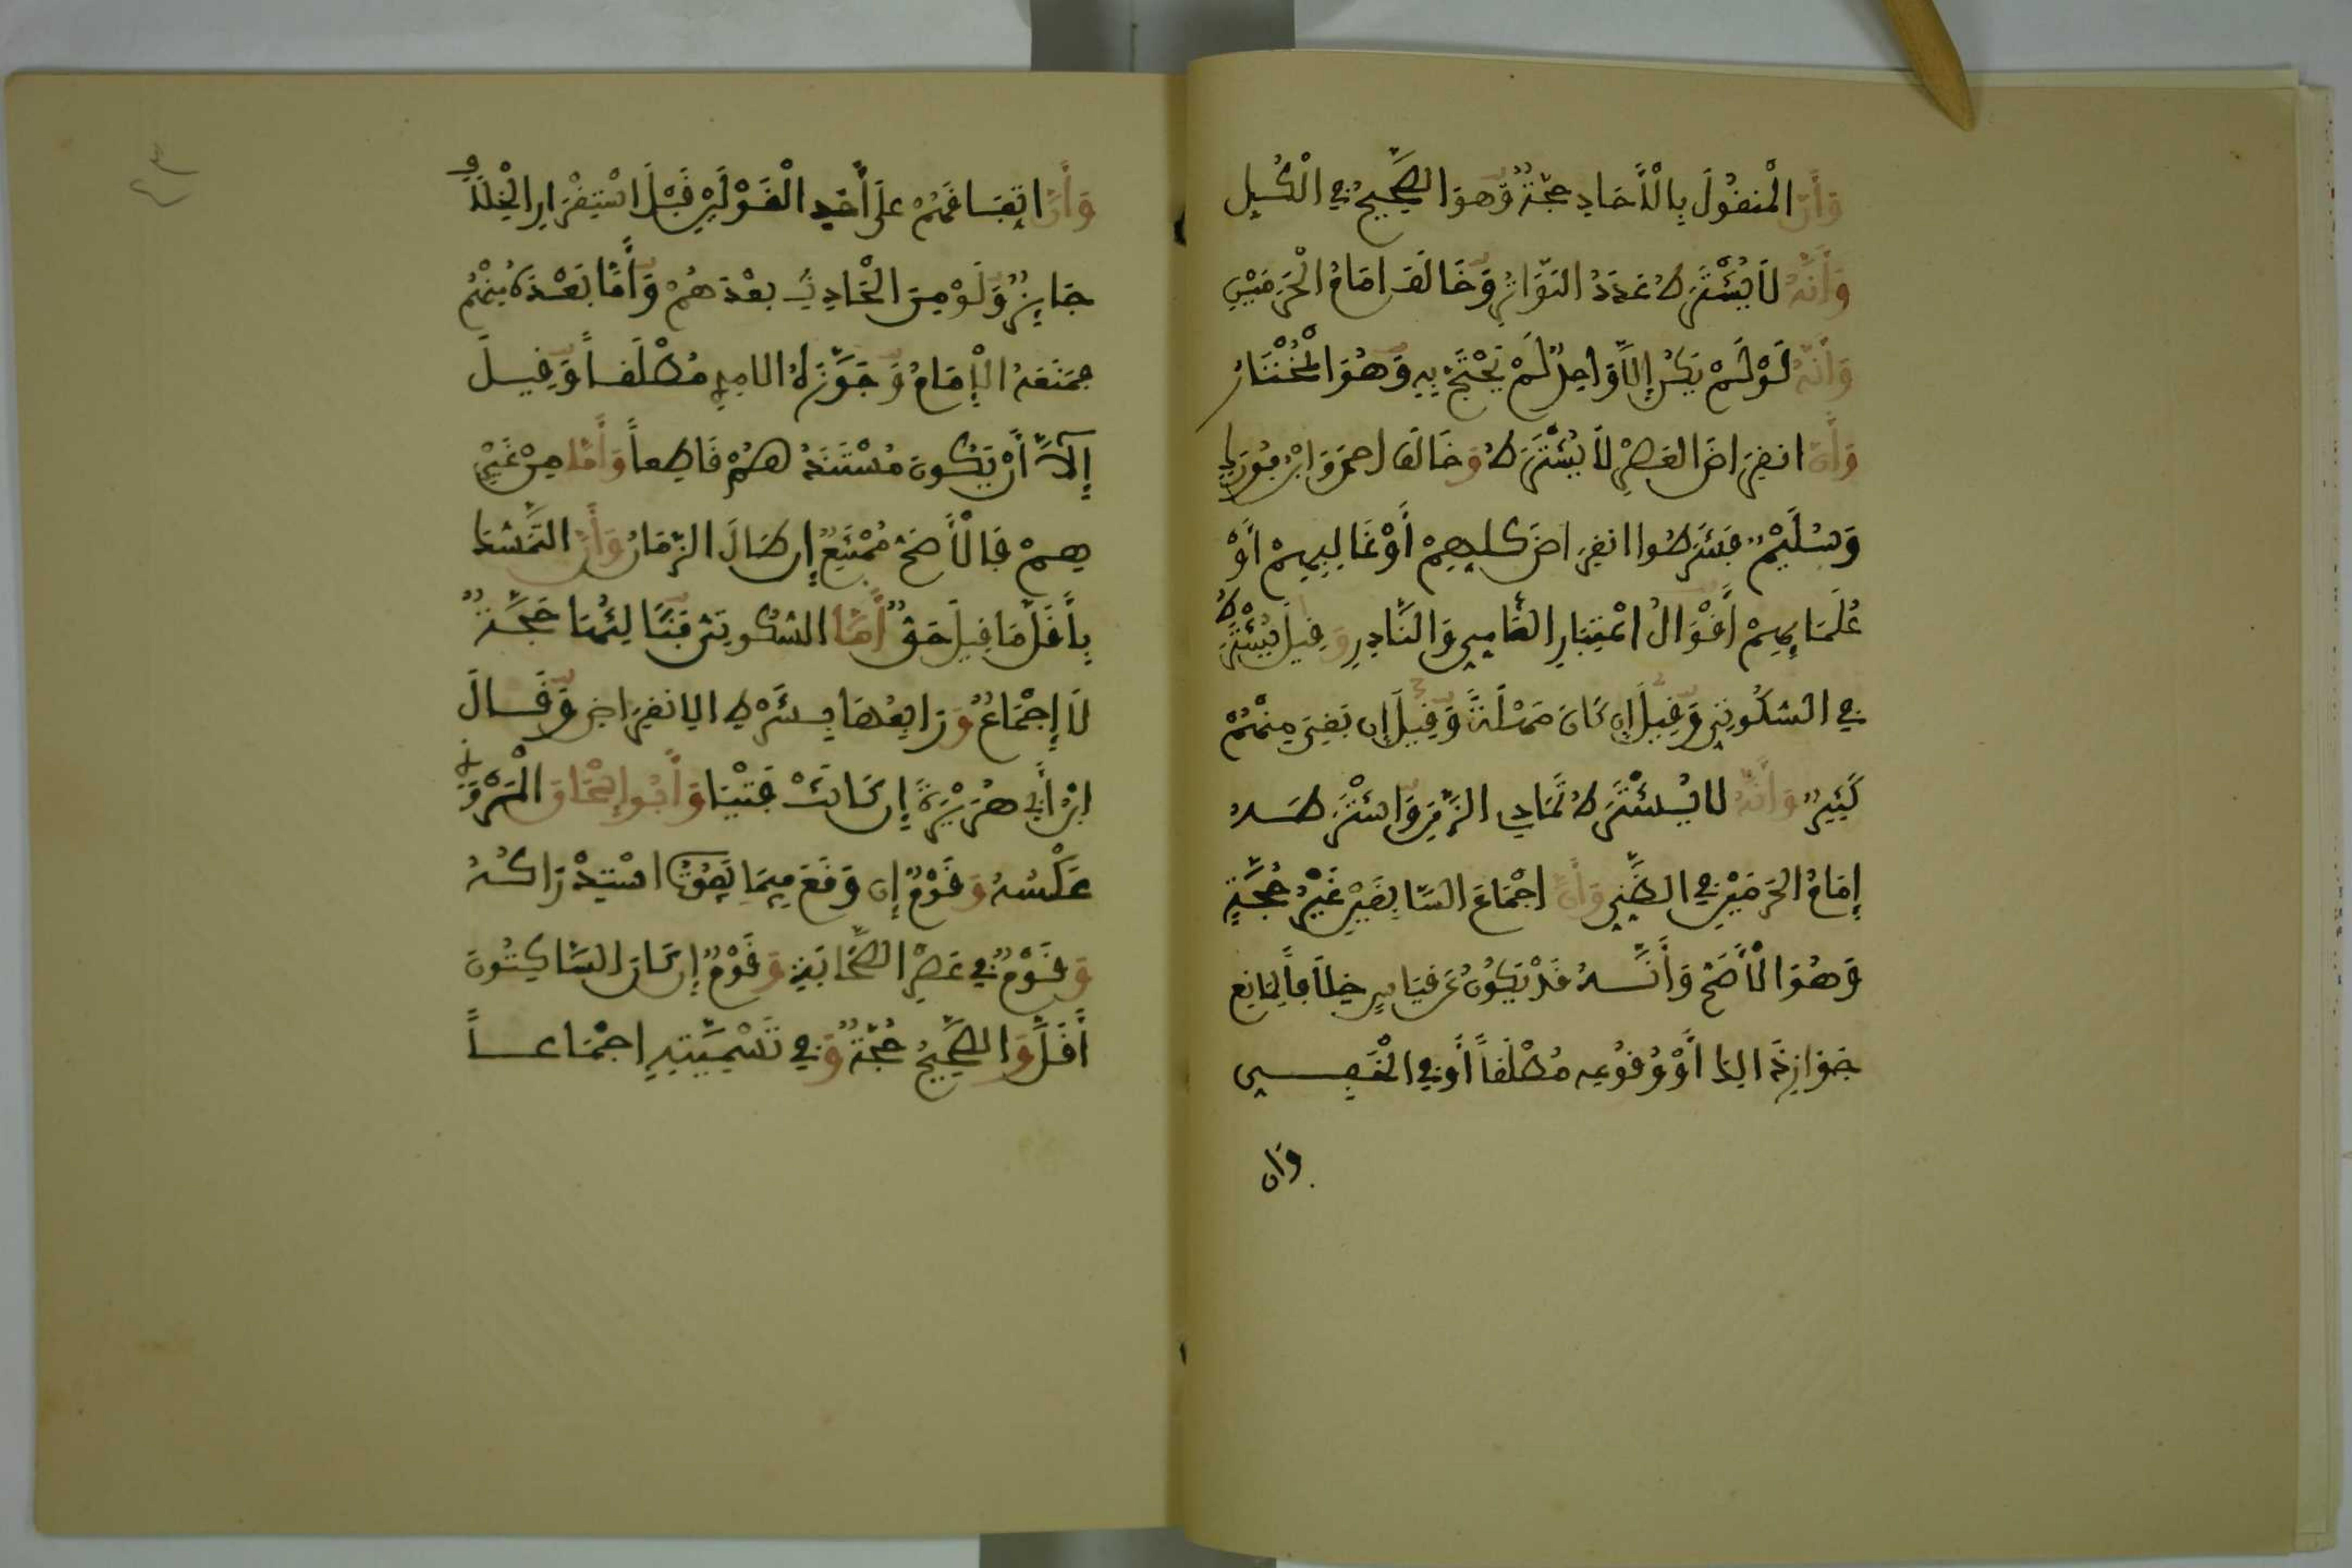 وَأَنَّ الْمَنقُولَ بِالْأَحَادِ حُجَّةٌ وَهُوَ الصَّحِيحُ فِي الْكُلِ
وَأَنَّهُ لَا يُشْتَرَطُ عَدَدُ التَّوَاتُرِ وَخَالَفَ إمَامُ الْحَرَمَيْنِ
وَأَنَّهُ لَوْ لَمْ يَكُنْ إِلَّا وَاحِدٌ لَمْ يُحْتَجَّ بِهِ وَهُوَ الْمُخْتَارُ
وَأَنَّ انقِرَاضَ العَصْرِ لَا يُشْتَرَطُ وَخَالَفَ احمد وَابْنُ فُورَكٍ
وَسُلَيْمٌ فَشَرَطُوا انقِرَاضَ كلِهِمْ أَوْ غَالِبِهِمْ أَوْ
عُلَمَائِهِمْ أَقْوَالُ اعْتِبَارِ العَّامِيِ وَالنَّادِرِ وَقِيلَ يُشْتَرَطُ
فِي السُّكُوتِيِ وَقِيلَ إِن كَانَ مَهْلَةٌ وَقِيلَ إِن بَقِيَ مِنْهُمْ
كَثِيرٌ وَأَنَّهُ لَا يُشْتَرَطُ تَمَادِي الزَّمَنِ وَاشْتَرَطَهُ
إِمَامُ الحَرَمَيْنِ فِي الظَّنِيِ وَأَنَّ اجْمَاعَ السَّابِقَيْنِ غَيْرُ حُجَّةٍ
وَهُوَ الْأَصَحُّ وَأَنَّهُ قَدْ يَكُونُ عَن قِيَاسٍ خِلَافاً لِمَانِعِ
جَوَازِ ذَالِكَ أَوْ وُقُوعِهِ مُطْلَقاً أَوْ فِي الْخَفِيِ
وَان
وَأَنَّ اتِّفَاقَهُمْ عَلَى أَحَدِ الْقَوْلَيْنِ قَبْلَ اسْتِقْرَارِ الْخِلَافِ
جَايِزٌ وَلَوْ مِنَ الْحَادِثِ بَعْدَهُمْ وَأَمَّا بَعْدَهُ مِنْهُمْ
فمَنَعَهُ الْإِمَامُ وَجَوَّزَهُ الامدِي مُطْلَقاً وَقِيلَ
إِلَّا أَنْ يَكُونَ مُسْتَنَدُهُمْ قَاطِعاً وَأَمَّا مِنْ غَيْرِ
هِمْ فَالْأَصَحُّ مُمْتَنِعٌ إِن طَالَ الزَّمَانُ وَأَنَّ التَّمَسُّكَ
بِأَقَلِّ مَا قِيلَ حَقٌّ أَمَّا السُّكُوتِيُّ فَثَالِثُهَا حُجَّةٌ
لَا إِجْمَاعٌ وَرَابِعُهَا بِشَرْطِ الِانقِرَاضِ وَقَالَ
ابْنُ أَبِي هُرَيْرَةَ إِن كَانَتْ فُتْيَا وَأَبُو إِسْحَاقَ الْمَرْوَزِيُّ
عَكْسُهُ وَقَوْمٌ إِن وَقَعَ فِيمَا يَفُوتُ اسْتِدْرَاكُهُ
وَقَوْمٌ فِي عَصْرِ الصَّحَابَةِ وَقَوْمٌ إِن كَانَ السَّاكِتُونَ
أَقَلَّ وَالصَّحِيحُ حُجَّةٌ وَفِي تَسْمِيَّتِهِ اجْمَاعاً